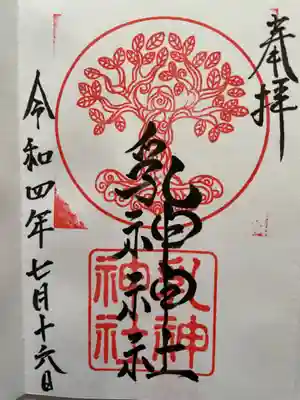 奉拝
乳神神社
乳神神社
令和四年七月十六日